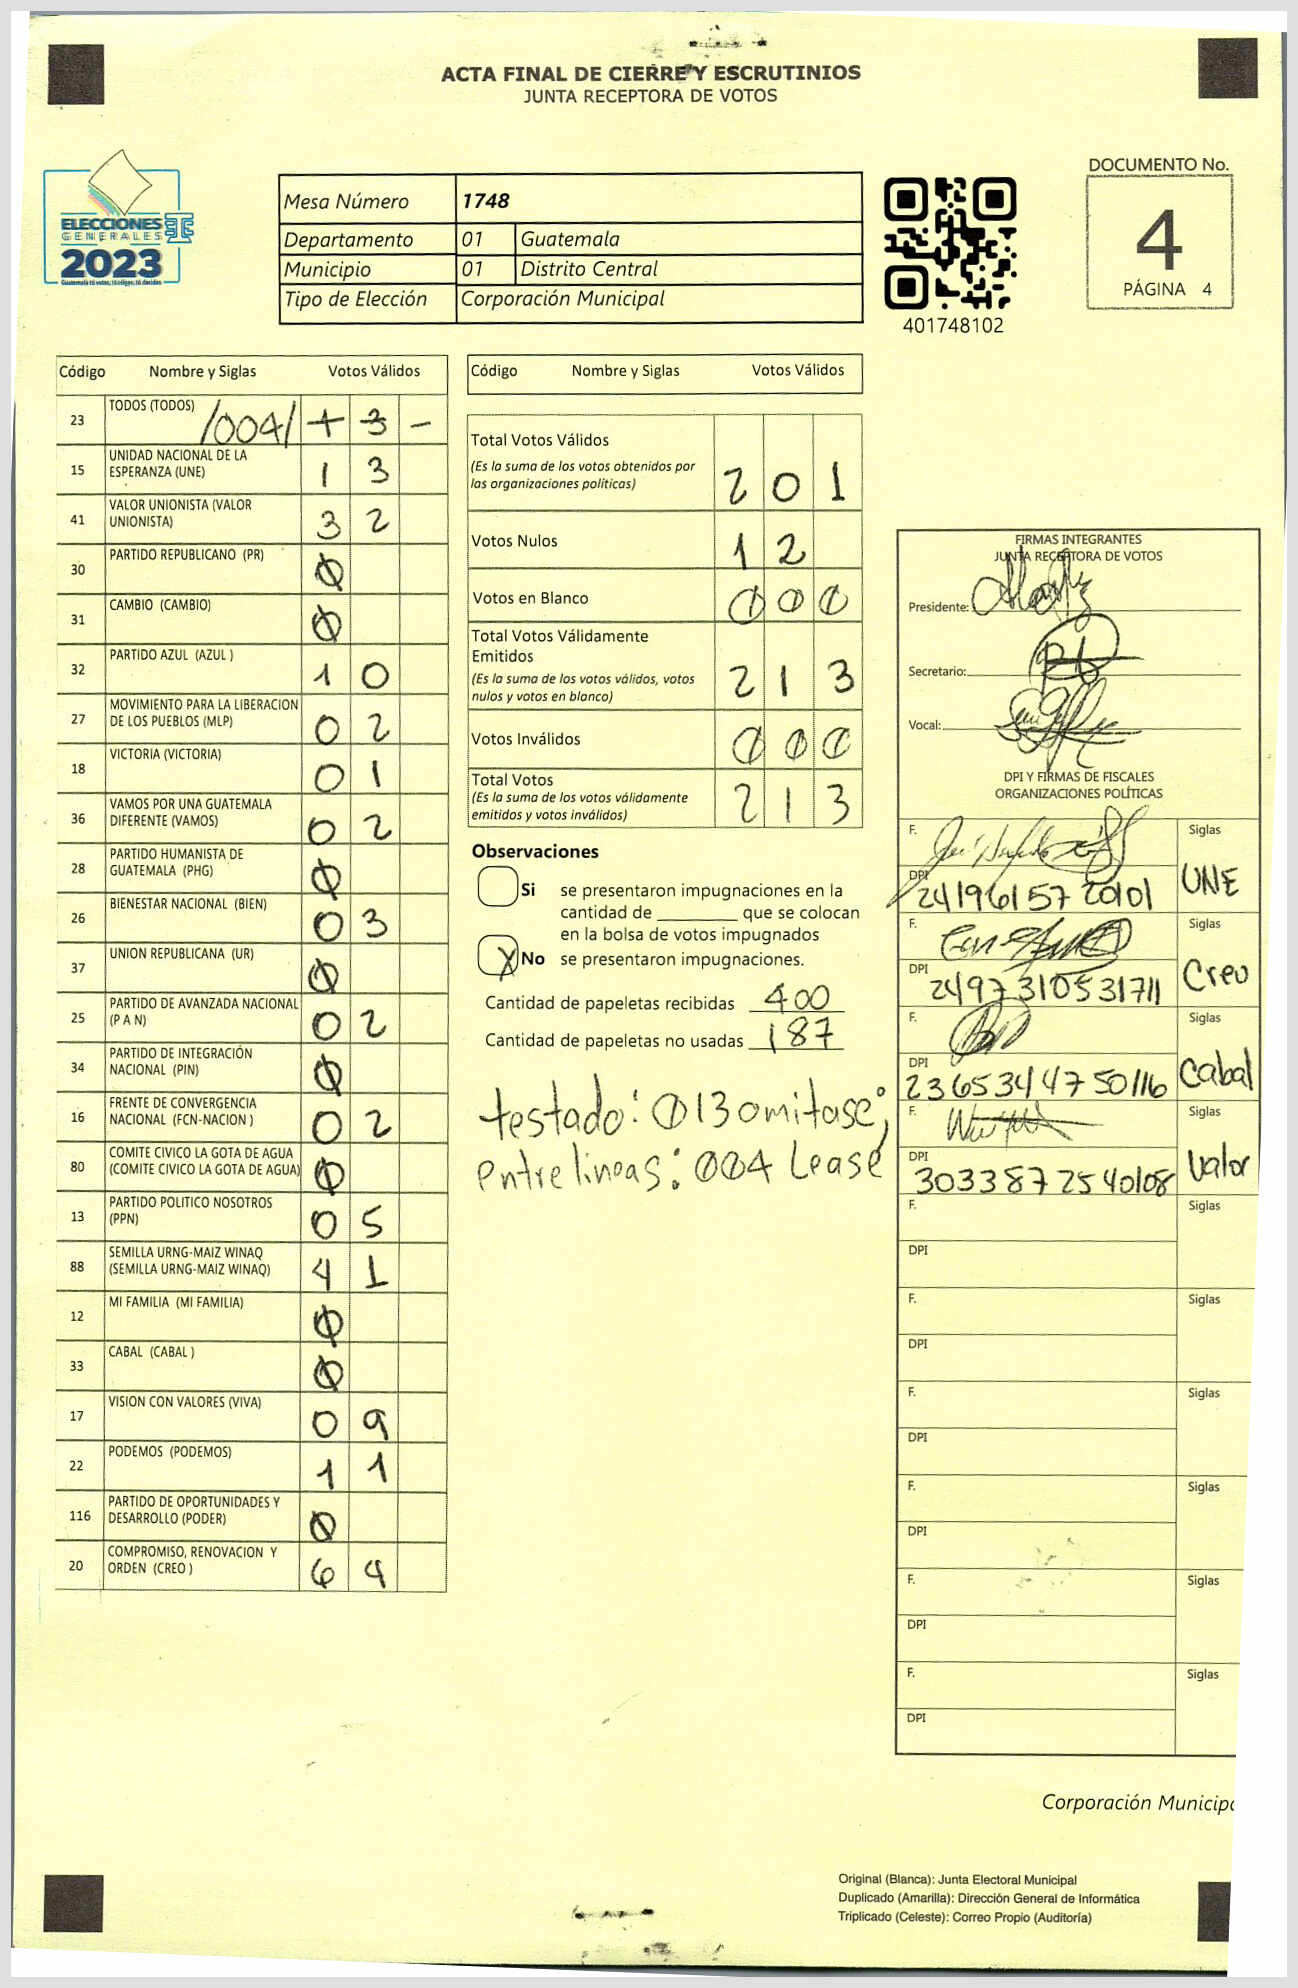 ACTA FINAL DE CIERRE Y ESCRUTINIOS
JUNTA RECEPTORA DE VOTOS
ELECCIONES
GENERALES
2023
Guatemala tú votas, tú eliges, tú decides
Mesa Número 1748
Departamento 01 Guatemala
Municipio 01 Distrito Central
Tipo de Elección Corporación Municipal
401748102
DOCUMENTO No.
4
PÁGINA 4
Código Nombre y Siglas Votos Válidos
23 TODOS (TODOS) /004/ 1 3 -
15 UNIDAD NACIONAL DE LA
ESPERANZA (UNE) 1 3
41 VALOR UNIONISTA (VALOR
UNIONISTA) 3 2
30 PARTIDO REPUBLICANO (PR) 0
31 CAMBIO (CAMBIO) 0
32 PARTIDO AZUL (AZUL ) 1 0
27 MOVIMIENTO PARA LA LIBERACION
DE LOS PUEBLOS (MLP) 0 2
18 VICTORIA (VICTORIA) 0 1
36 VAMOS POR UNA GUATEMALA
DIFERENTE (VAMOS) 0 2
28 PARTIDO HUMANISTA DE
GUATEMALA (PHG) 0
26 BIENESTAR NACIONAL (BIEN) 0 3
37 UNION REPUBLICANA (UR) 0
25 PARTIDO DE AVANZADA NACIONAL
(P A N) 0 2
34 PARTIDO DE INTEGRACIÓN
NACIONAL (PIN) 0
16 FRENTE DE CONVERGENCIA
NACIONAL (FCN-NACION ) 0 2
80 COMITE CIVICO LA GOTA DE AGUA
(COMITE CIVICO LA GOTA DE AGUA) 0
13 PARTIDO POLITICO NOSOTROS
(PPN) 0 5
88 SEMILLA URNG-MAIZ WINAQ
(SEMILLA URNG-MAIZ WINAQ) 4 1
12 MI FAMILIA (MI FAMILIA) 0
33 CABAL (CABAL ) 0
17 VISION CON VALORES (VIVA) 0 9
22 PODEMOS (PODEMOS) 1 1
116 PARTIDO DE OPORTUNIDADES Y
DESARROLLO (PODER) 0
20 COMPROMISO, RENOVACION Y
ORDEN (CREO ) 6 4
Código Nombre y Siglas Votos Válidos
Total Votos Válidos
(Es la suma de los votos obtenidos por
las organizaciones políticas) 2 0 1
Votos Nulos 1 2
Votos en Blanco 0 0 0
Total Votos Válidamente
Emitidos
(Es la suma de los votos válidos, votos
nulos y votos en blanco) 2 1 3
Votos Inválidos 0 0 0
Total Votos
(Es la suma de los votos válidamente
emitidos y votos inválidos) 2 1 3
Observaciones
Si se presentaron impugnaciones en la
cantidad de ________ que se colocan
en la bolsa de votos impugnados
X No se presentaron impugnaciones.
Cantidad de papeletas recibidas 400
Cantidad de papeletas no usadas 187
testado: 013 omitase;
entre lineas: 004 Lease
FIRMAS INTEGRANTES
JUNTA RECEPTORA DE VOTOS
Presidente:
Secretario:
Vocal:
DPI Y FIRMAS DE FISCALES
ORGANIZACIONES POLÍTICAS
F. Siglas
DPI 2419615720101 UNE
F. Siglas
DPI 2497310531711 Creo
F. Siglas
DPI 2365344750116 Cabal
F. Siglas
DPI 3033872540108 Valor
F. Siglas
DPI
F. Siglas
DPI
F. Siglas
DPI
F. Siglas
DPI
F. Siglas
DPI
F. Siglas
DPI
Corporación Municip
Original (Blanca): Junta Electoral Municipal
Duplicado (Amarilla): Dirección General de Informática
Triplicado (Celeste): Correo Propio (Auditoría)